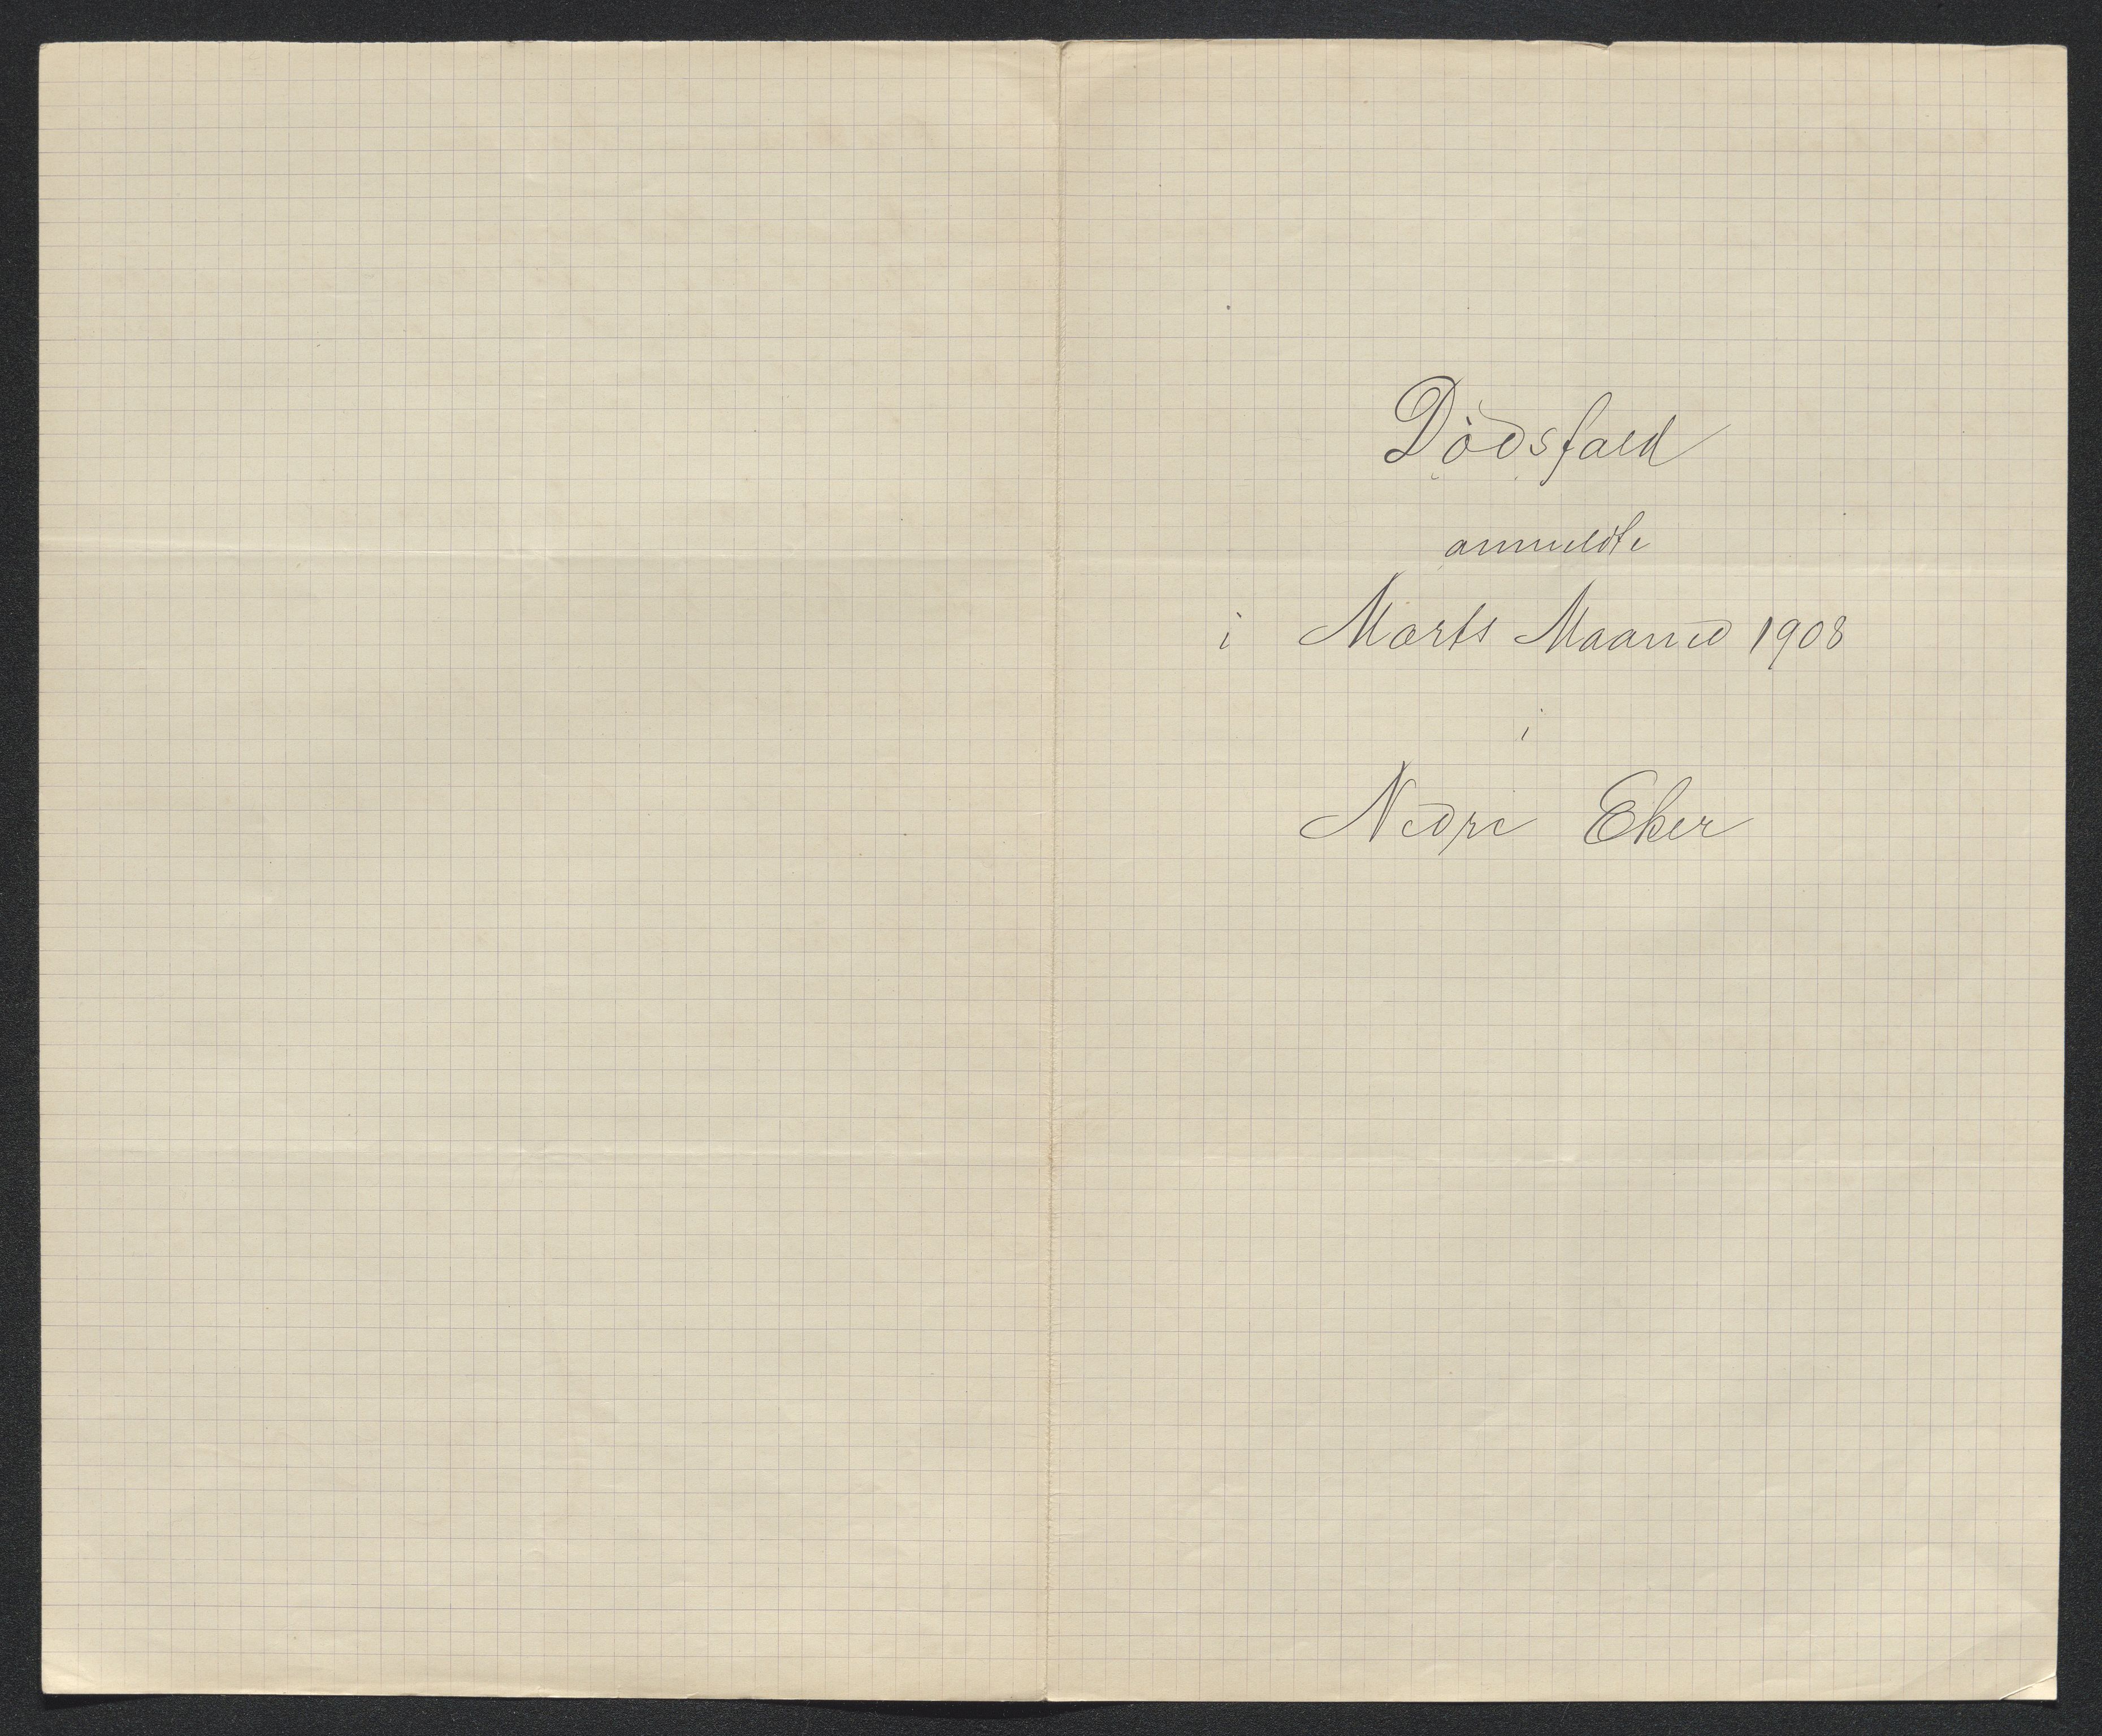 Dödsfald
anmeldte
i Marts Maaned 1908
i
Nedre Eker